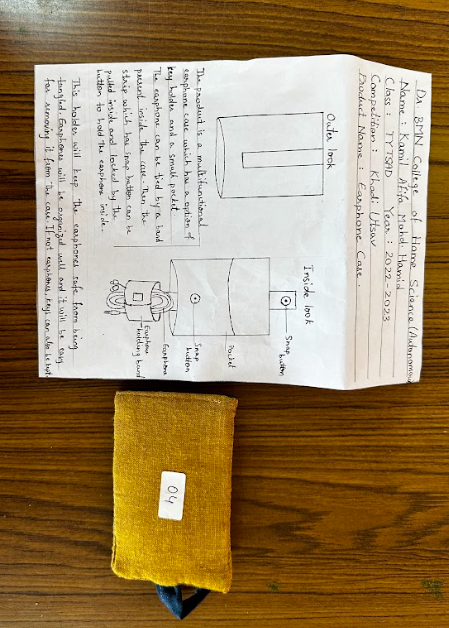 Dr. BMN College of Home Science (Autonomous
Name : Kamil Afifa Mohd Hamid
Class : TYTSAD Year : 2022-2023
Competition : Khadi Utsav
Product Name : Earphone Case.
Outer look
Inside look
Snap
button
Pocket
Snap
button
Earphone
Earphone
holding band
The product is a multifunctional
earphone case which has a option of
key holder and a small pocket
The earphone can be tied by a band
present inside the case. Then the
strap which has snap button can be
pulled inside and locked by the
button to hold the earphone inside.
This holder will keep the earphones safe from being
tangled. Earphones will be organized well and it will be easy
for removing it from the case. If not earphone, keys can also be kept.
04